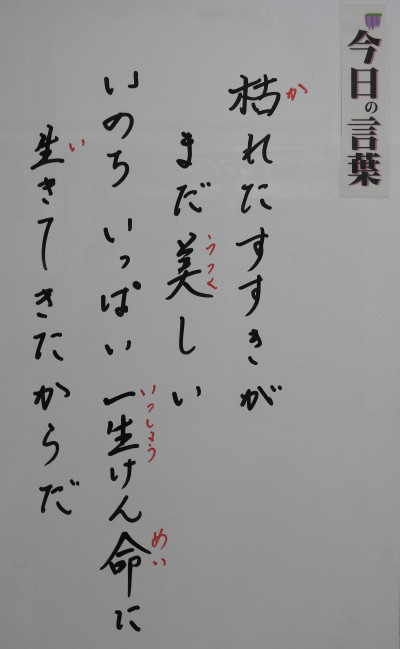 今日の言葉
枯れたすすきが
まだ美しい
いのちいっぱい一生けん命に
生きてきたからだ
か
うつく
いっしょう
めい
い